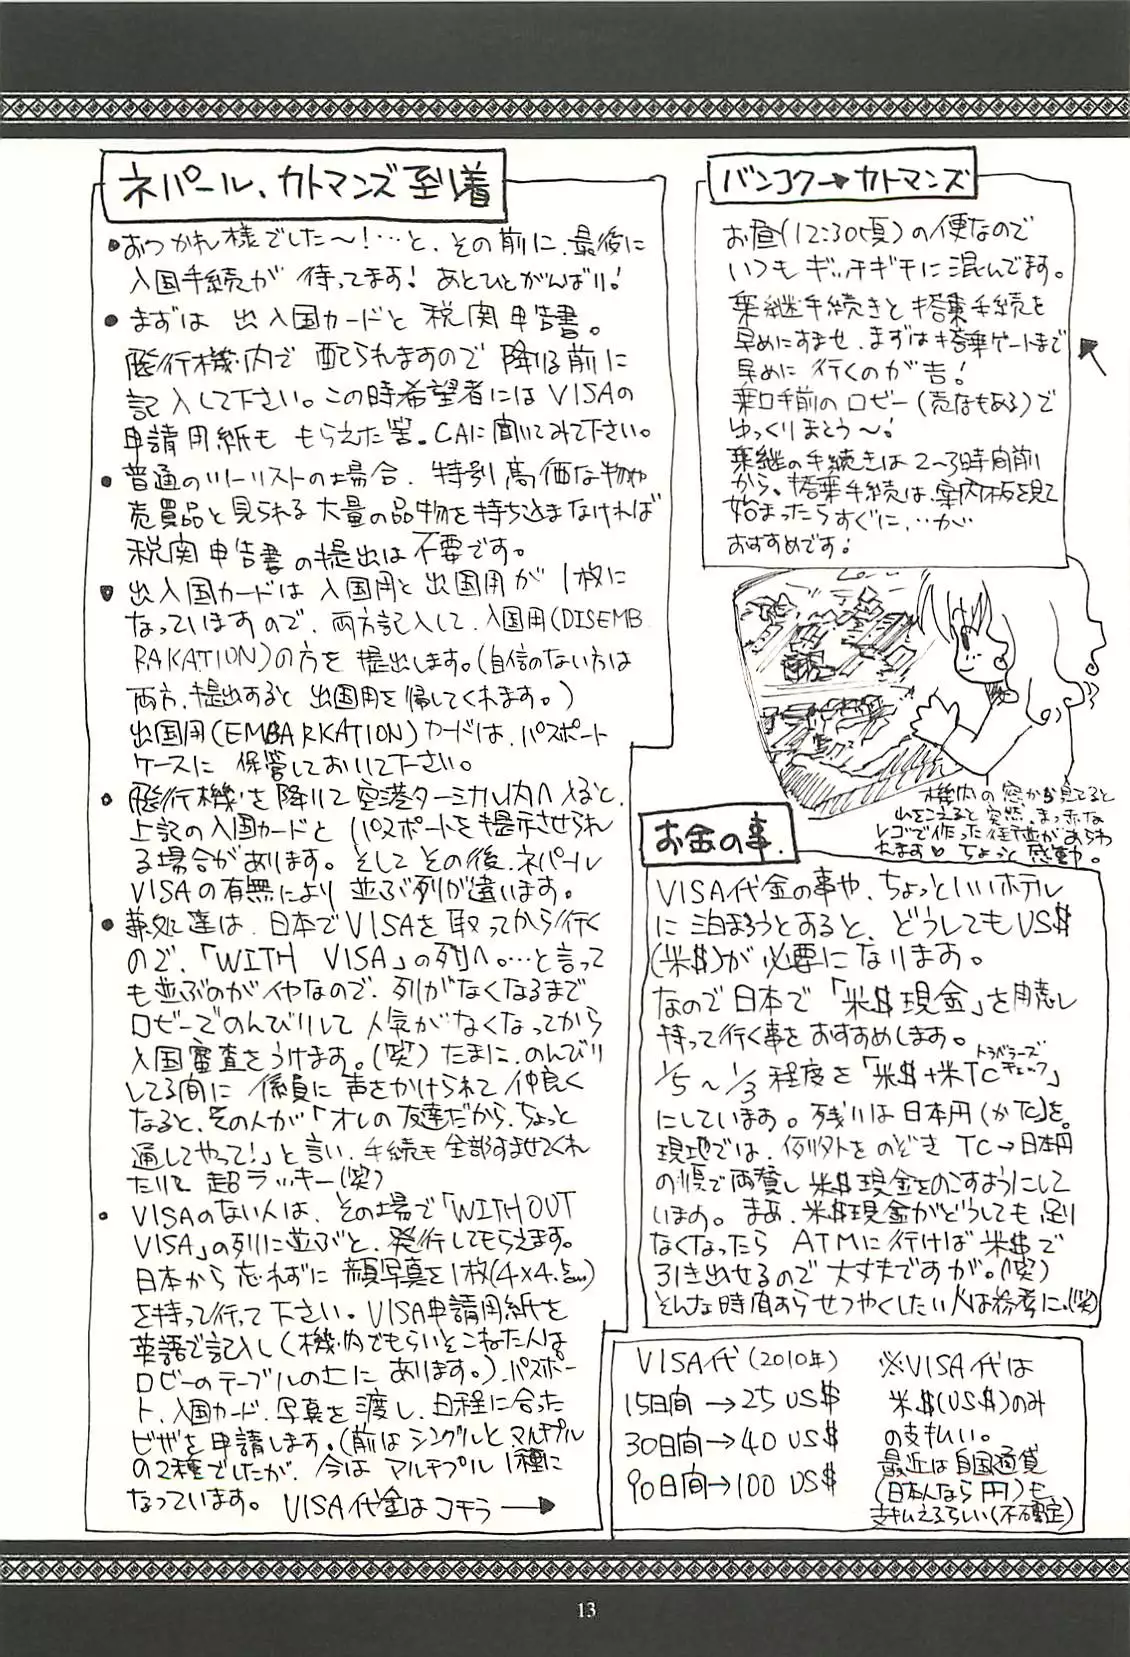 バンコク→カトマンズ
お昼(12:30頃)の便なので
いつもギッチギチに混んでます。
乗継手続きと搭乗手続を
早めにすませ、まずは搭乗ゲートまで
早めに行くのが吉!
乗口手前のロビー(売店もある)で
ゆっくりまとう〜!
乗継の手続きは2〜3時間前
から、搭乗手続は、案内板を見て
始まったらすぐに、…が
おすすめです!
機内の窓から見てると
山をこえると突然、まっ赤な
レゴで作った街並があらわ
れます♥ ちょっと感動。
ネパール、カトマンズ到着
●おつかれ様でした〜!…と、その前に、最後に
入国手続が待ってます!あとひとがんばり!
●まずは 出入国カードと税関申告書。
飛行機内で配られますので降りる前に
記入して下さい。この時希望者にはVISAの
申請用紙ももらえた筈。CAに聞いてみて下さい。
●普通のツーリストの場合、特別高価な物や
売買品と見られる大量の品物を持ち込まなければ
税関申告書の提出は不要です。
●出入国カードは入国用と出国用が1枚に
なっていますので、両方記入して、入国用(DISEMB
RAKATION)の方を提出します。(自信のない方は
両方、提出すると出国用を帰してくれます。)
出国用(EMBARKATION)カードは、パスポート
ケースに保管しておいて下さい。
●飛行機を降りて空港ターミナル内へ入ると、
上記の入国カードとパスポートを提示させられ
る場合があります。そしてその後、ネパール
VISAの有無により並ぶ列が違います。
●華処達は、日本でVISAを取ってから行く
ので、「WITH VISA」の列へ。…と言って
も並ぶのがイヤなので、列がなくなるまで
ロビーでのんびりして人気がなくなってから
入国審査をうけます。(笑)たまに、のんびり
してる間に係員に声をかけられて仲良く
なると、その人が「オレの友達だから、ちょっと
通してやって!」と言い、手続も全部すませてくれ
たりで超ラッキー(笑)
●VISAのない人は、その場で「WITHOUT
VISA」の列に並ぶと、発行してもらえます。
日本から忘れずに顔写真を1枚(4×4.5㎝)
を持って行って下さい。VISA申請用紙を
英語で記入し(機内でもらいそこねた人は
ロビーのテーブルの上にあります。)、パスポー
ト、入国カード、写真を渡し、日程に合った
ビザを申請します。(前はシングルとマルチプル
の2種でしたが、今はマルチプル1種に
なっています。 VISA代金はコチラ→
お金の事。
VISA代金の事や、ちょっといいホテル
に泊まろうとすると、どうしてもUS$
(米$)が必要になります。
なので日本で「米$現金」を用意し
持って行く事をおすすめします。
1/5〜1/3程度を「米$+米TC トラベラーズチェック」
にしています。残りは日本円(かTC)を。
現地では、例外をのぞきTC→日本円
の順で両替し米$現金をのこすようにして
います。まあ、米$現金がどうしても足り
なくなったらATMに行けば米$で
引き出せるので大丈夫ですが。(笑)
そんな時間あらせつやくしたい人は参考に。(笑)
VISA代(2010年)
15日間→25 US$
30日間→40 US$
90日間→100 US$
※VISA代は
米$(US$)のみ
の支払い。
最近は自国通貨
(日本人なら円)も
支払えるらしい(不確定)
13